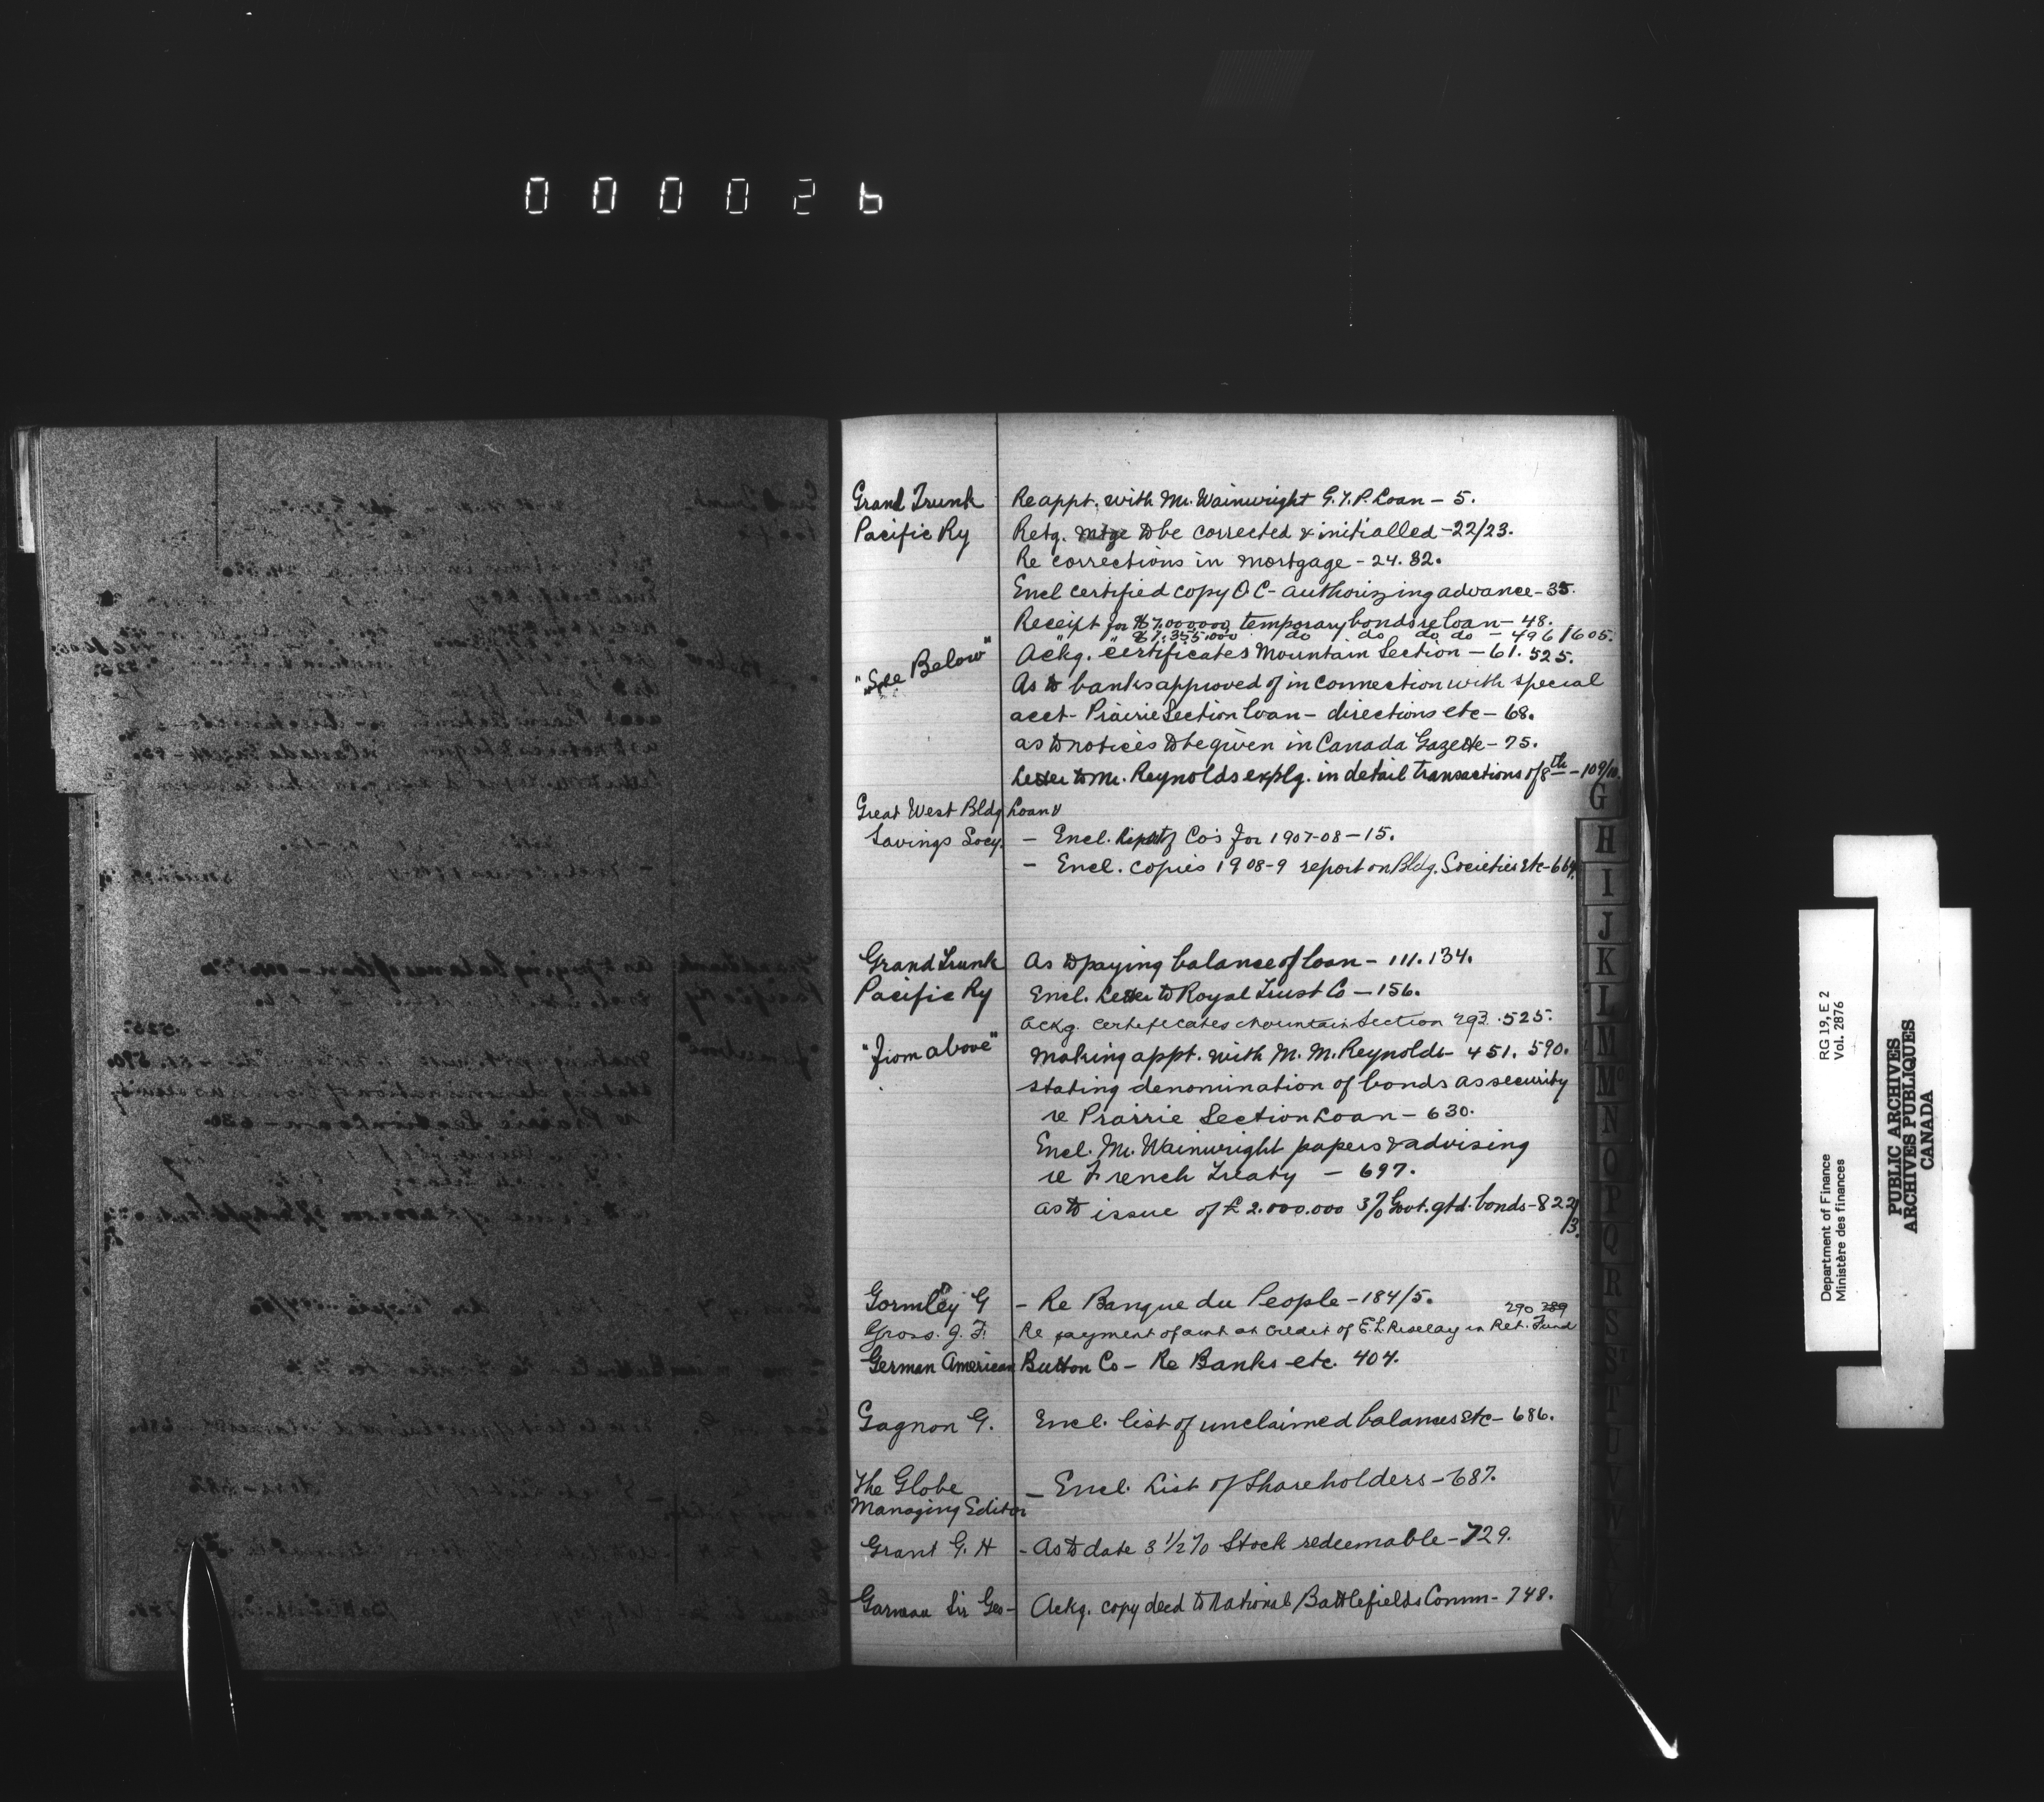 000026
Grand Trunk Re appt. with Mr. Wainwright G.T.P. Loan - 5.
Pacific Ry Retg. mtge to be corrected & initialled - 22/23.
Re corrections in mortgage - 24. 32.
Encl certified copy O C - authorizing advance - 35.
Receipt for $7.000.000 temporary bonds re loan - 48.
" " $7.355.000 do do do do - 496/605.
"See Below" Ackg. certificates Mountain Section - 61. 525.
As to banks approved of in connection with special
acct - Prairie Section loan - directions etc - 68.
as to notices to be given in Canada Gazette - 75.
Letter to Mr. Reynolds explg. in detail transactions of 8th - 109/10.
Great West Bldg. Loan &
Savings Socy. - Encl. Report of Co's for 1907-08 - 15.
- Encl. copies 1908-9 report on Bldg. Societies etc - 669.
Grand Trunk As to paying balance of loan - 111. 134.
Pacific Ry Encl. Letter to Royal Trust Co - 156.
Ackg. certificates Mountain Section 293. 525.
"From above" Making appt. with M. M. Reynolds - 451. 590.
stating denomination of bonds as security
re Prairie Section Loan - 630.
Encl. Mr. Wainwright papers & advising
re French Treaty - 697.
as to issue of £2.000.000 3% Govt. gtd. bonds - 822/
/3.
Gormley G - Re Banque du Peuple - 184/5.
290 289
Gross. J. F. Re payment of amt at credit of E. L. in Ret. Fund
German American Button Co - Re Banks etc. 404.
Gagnon G. Encl. list of unclaimed balances etc - 686.
The Globe - Encl. List of Shareholders - 687.
Managing Editor
Grant G. H - As to date 3 1/2 % Stock redeemable - 729.
Garneau Sir Geo - Ackg. copy deed to National Battlefields Comm - 748.
G
H
I
J
K
L
M
Mc
N
O
P
Q
R
S
T
U
V
W
Department of Finance RG 19, E 2
Ministère des finances Vol. 2876
PUBLIC ARCHIVES
ARCHIVES PUBLIQUES
CANADA